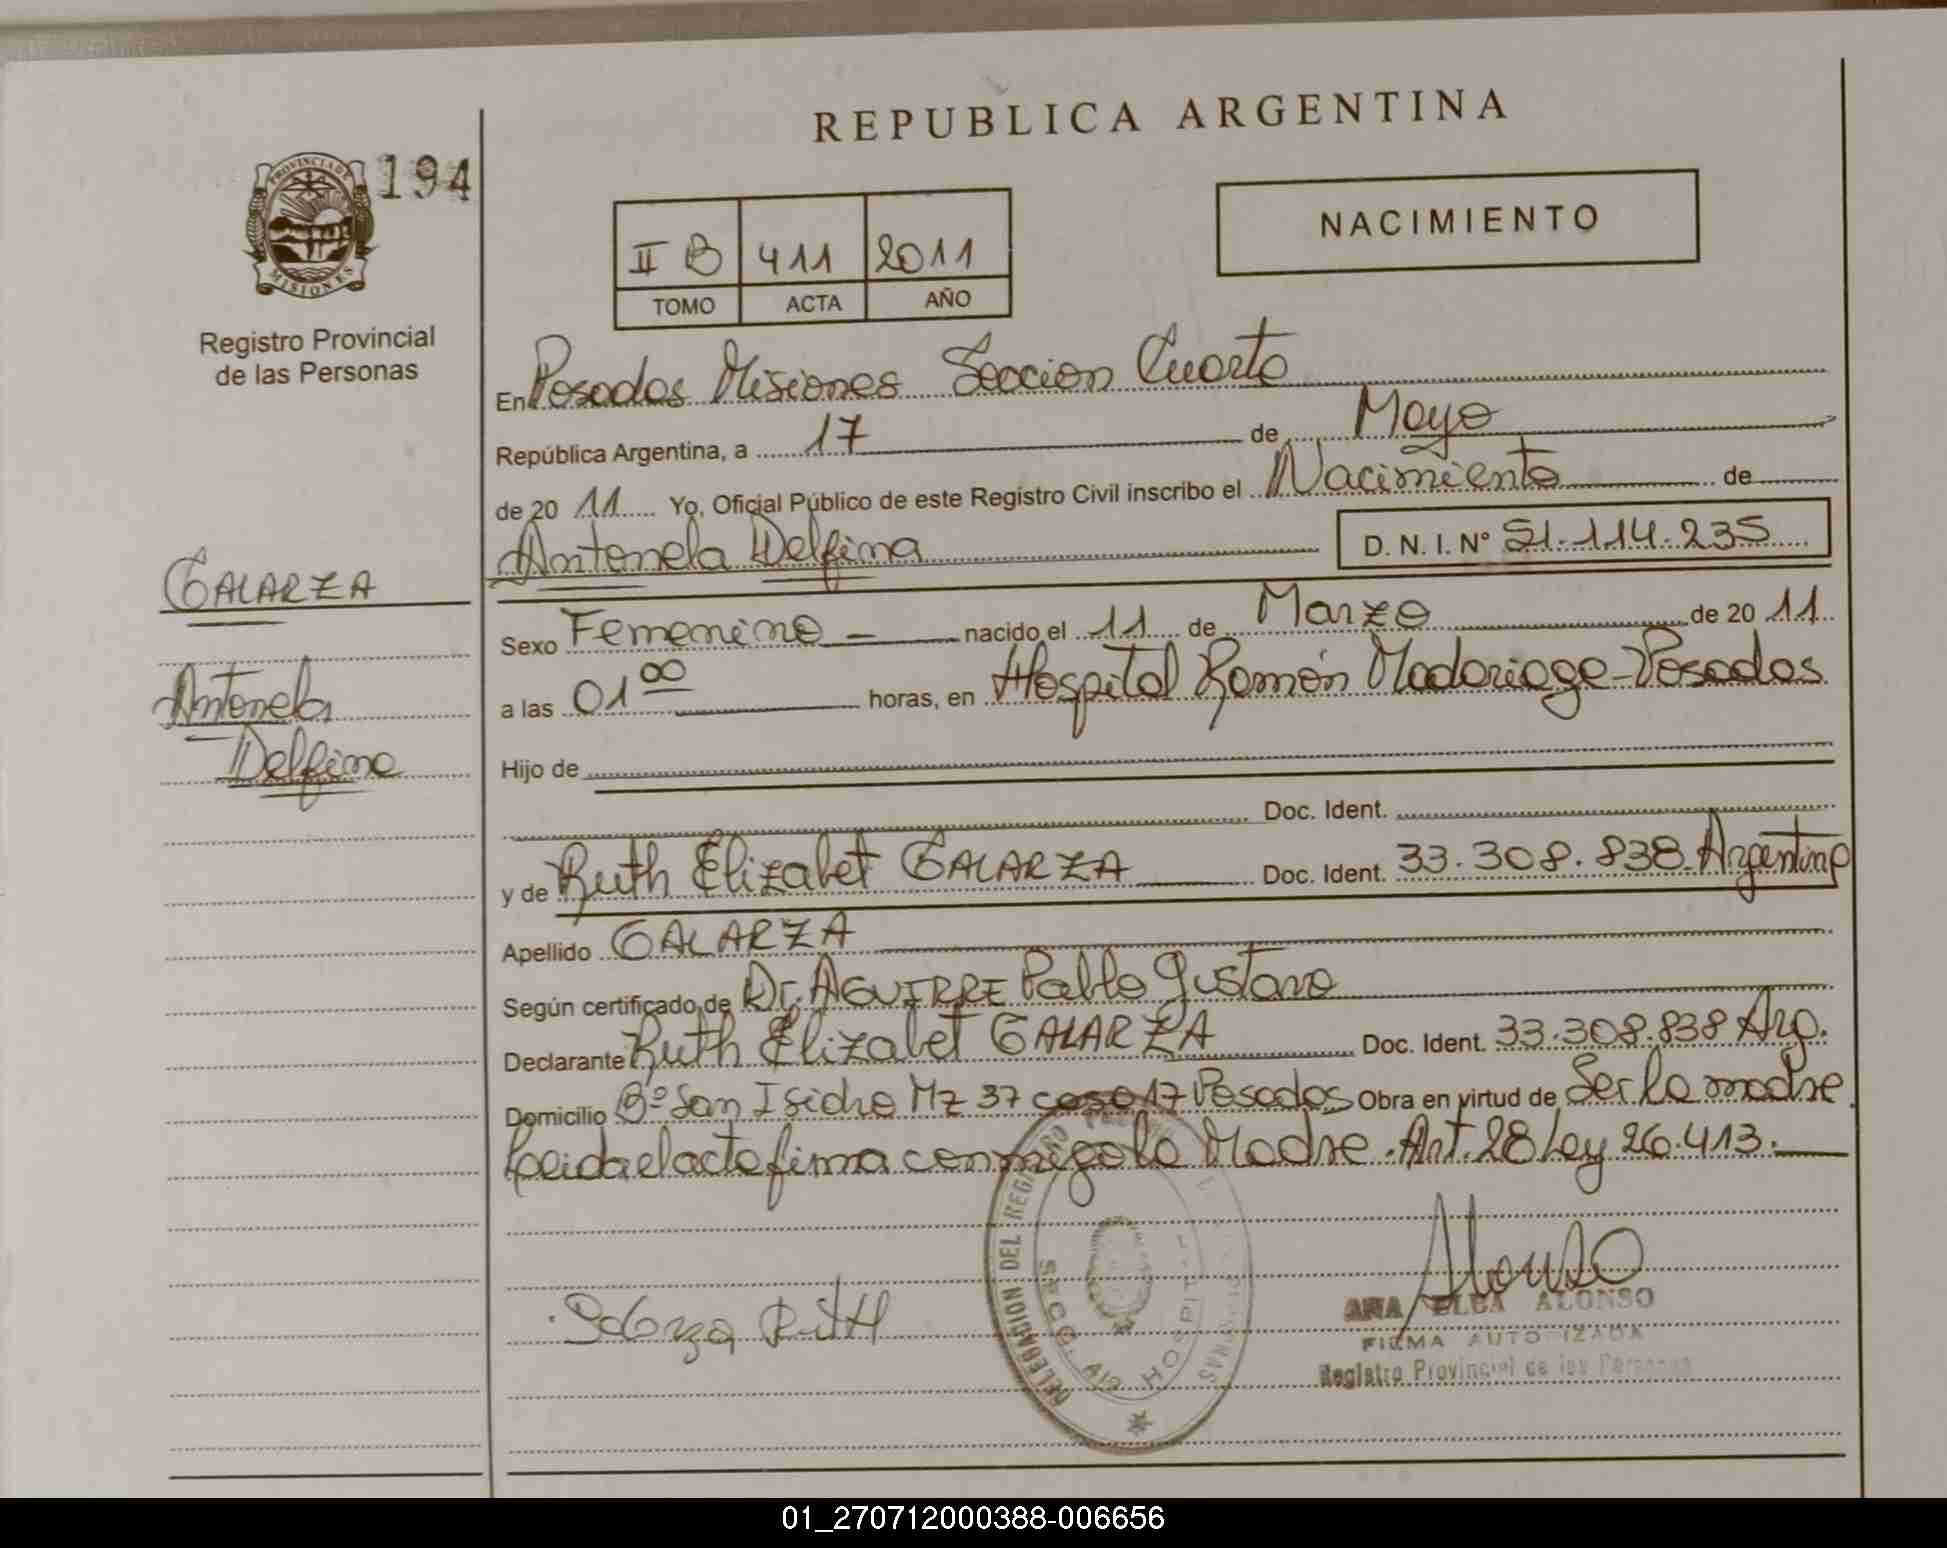 REPUBLICA ARGENTINA
PROVINCIA DE
MISIONES
194
Registro Provincial
de las Personas
II B 411 2011
TOMO ACTA AÑO
NACIMIENTO
En Posadas Misiones Seccion Cuarta
República Argentina, a 17 de Mayo
de 20 11 Yo, Oficial Público de este Registro Civil inscribo el Nacimiento de
Antonela Delfina D. N. I. N° 51.114.235
GALARZA
Antonela
Delfina
Sexo Femenino nacido el 11 de Marzo de 20 11
a las 01 00 horas, en Hospital Ramón Madariaga - Posadas
Hijo de
Doc. Ident.
y de Ruth Elizabet GALARZA Doc. Ident. 33.308.838 Argentina
Apellido GALARZA
Según certificado de Dr. AGUIRRE Pablo Gustavo
Declarante Ruth Elizabet GALARZA Doc. Ident. 33.308.838 Arg.
Domicilio Bº San Isidro Mz 37 casa 17 Posadas Obra en virtud de Ser la madre
Leida el acta firma conmigo la Madre. Art. 28 Ley 26.413.
Galarza Ruth
DELEGACION DEL REGISTRO
HOSPITAL
ANA ELBA ALONSO
FIRMA AUTORIZADA
Registro Provincial de las Personas
01_270712000388-006656